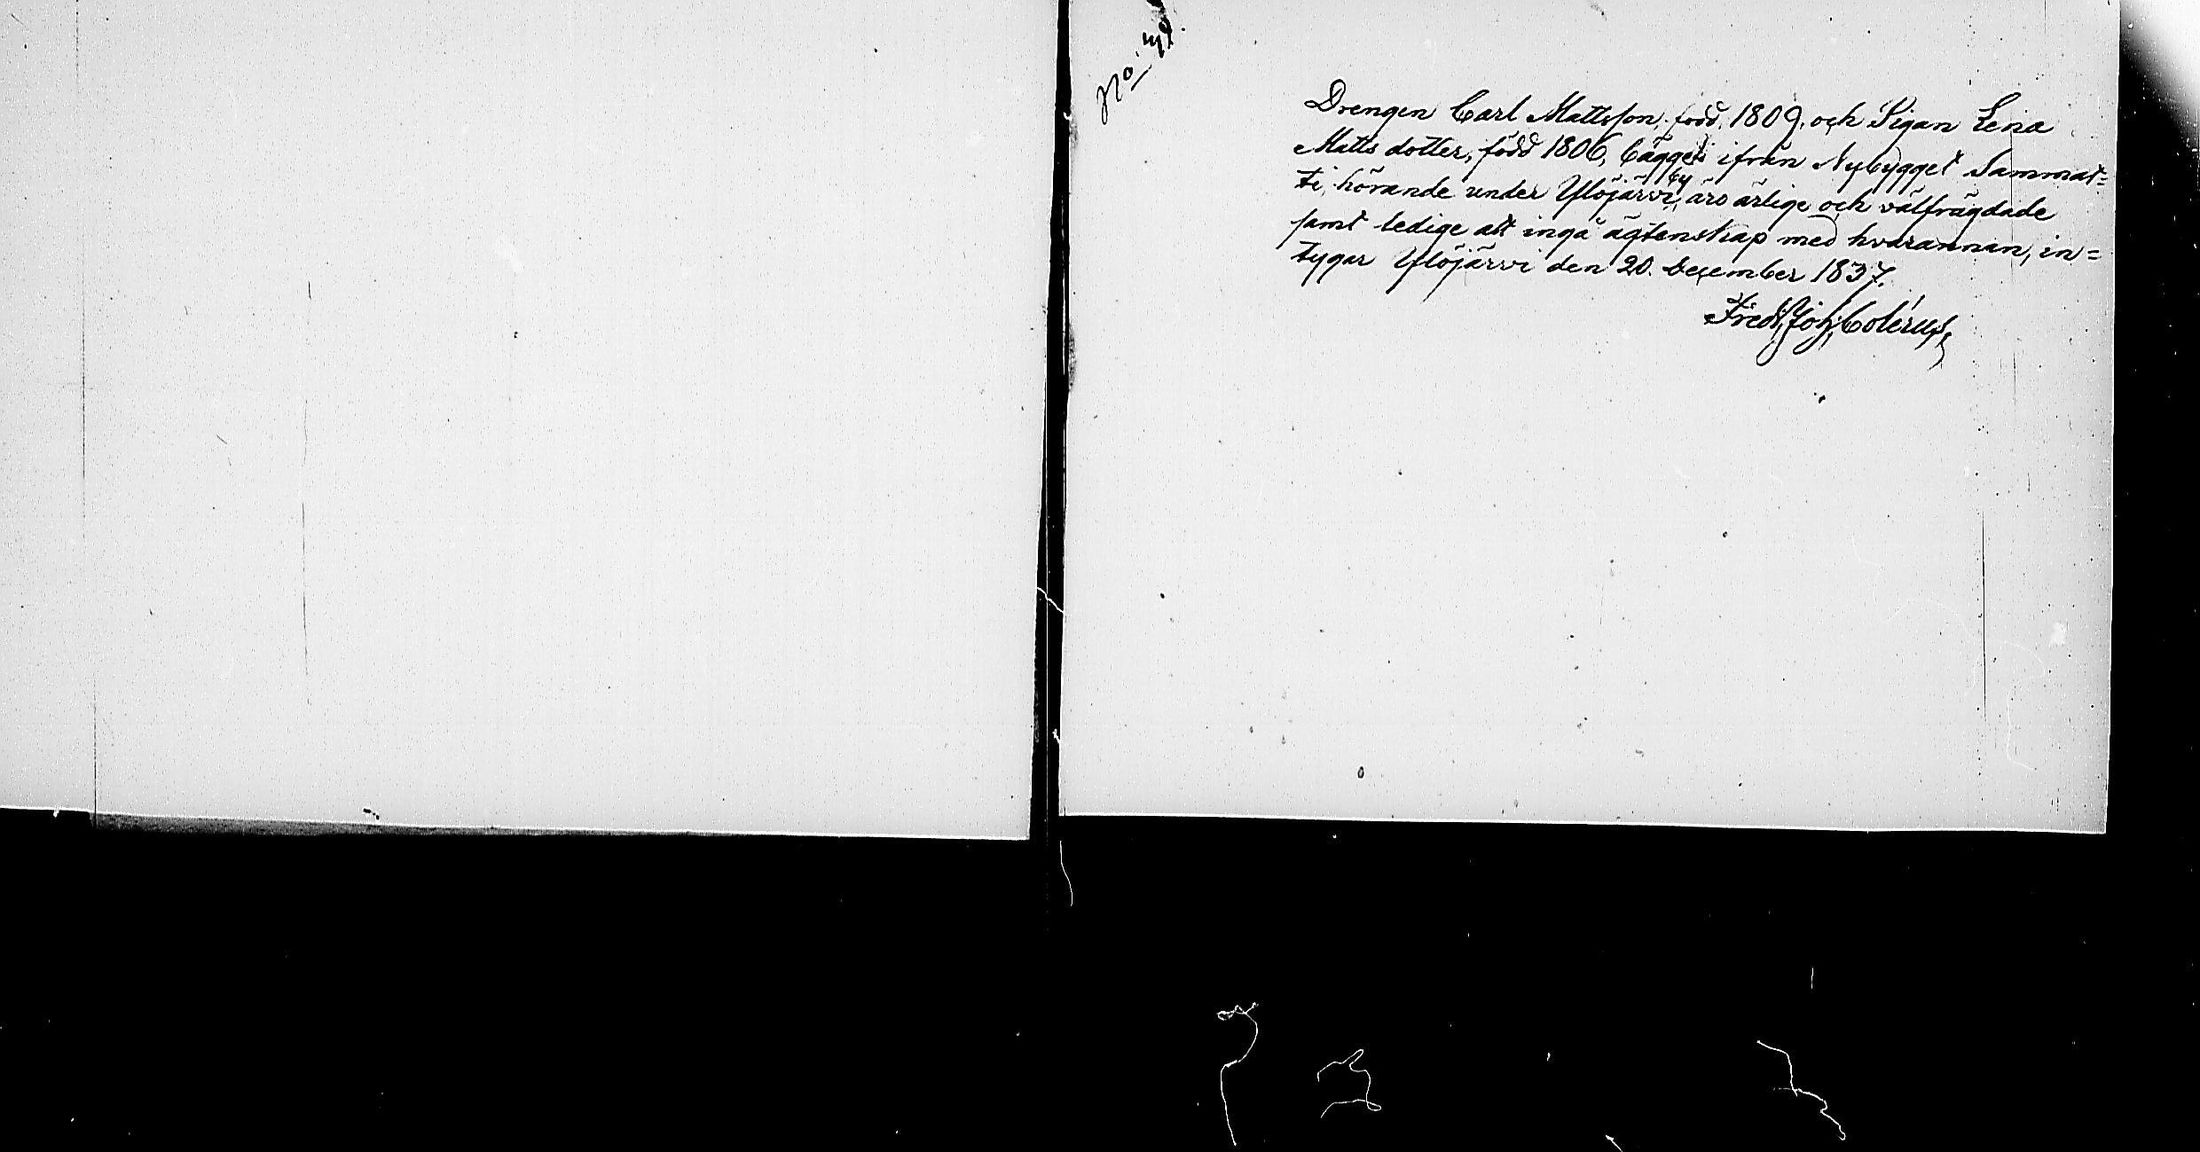 No.
Drengen Carl Mattsson, född 1809, och Pigan Lena
Matts dotter, född 1806, bägge ifrån Nybygget Sammat=
ti, hörande under Ylöjärvi by, äro ärlige och välfrägdade
samt ledige att ingå ägtenskap med hvarannan, in=
tygar Ylöjärvi den 20. December 1837.
Fredr. Joh. Colérus